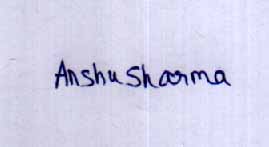 Anshu Sharma